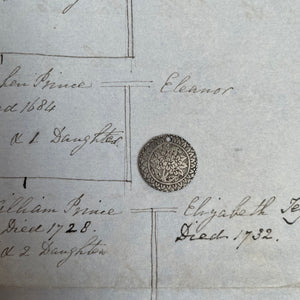 hen Prince Eleanor
ed 1684
& 1 Daughter
illiam Prince Elizabeth
Died 1728 Died 1732.
& 2 Daughters